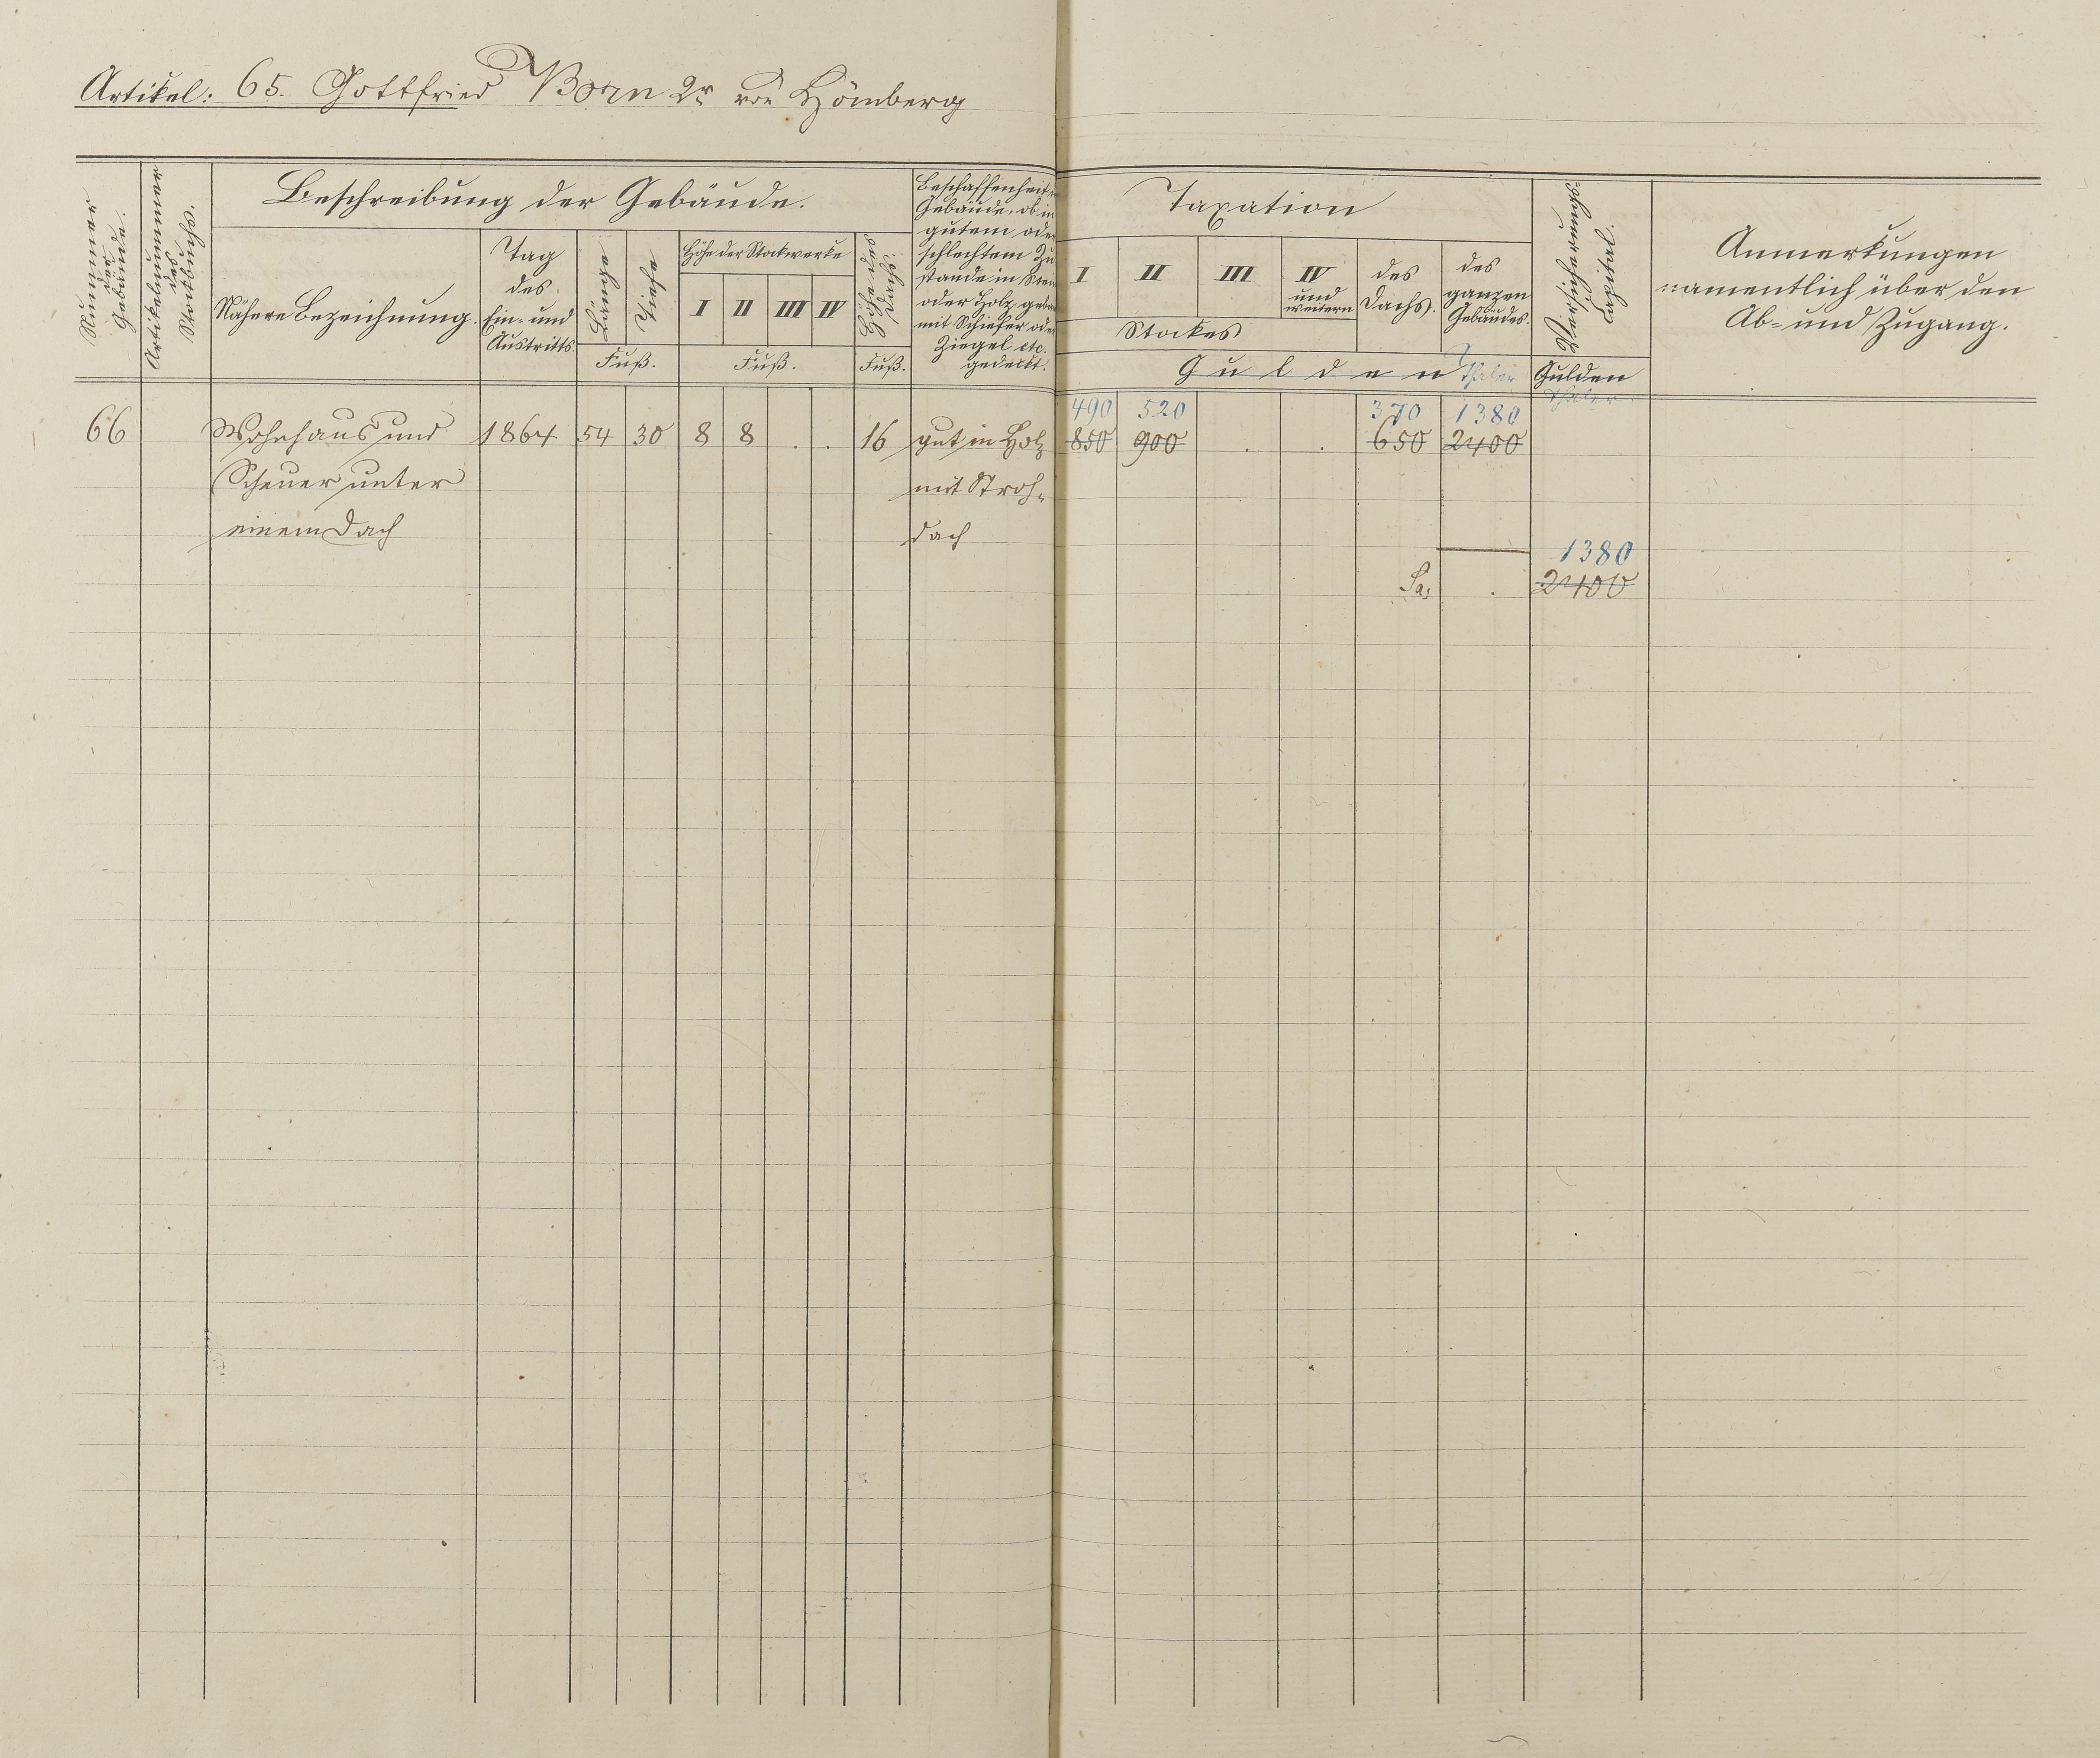 Artikel: 65. Gottfried Born 2r von Hömberg
Nummer der Gebäude.
Artikelnummer des Stockbuchs.
Beschreibung der Gebäude.
Nähere Bezeichnung.
Tag des Ein- und Austritts.
Länge
Tiefe
Fuß.
Höhe der Stockwerke
I II III IV
Fuß.
Höhe des Dachs.
Fuß.
Beschaffenheit
Gebäude, ob in
gutem oder
schlechtem Zu
stande in Stein
oder Holz
mit Schiefer oder
Ziegel etc.
gedeckt.
Taxation
I II III IV und weitern
Stockes
des Dachs.
des ganzen Gebäudes.
Gulden Thaler
Versicherungs Capital.
Gulden
Thaler
Anmerkungen
namentlich über den
Ab- und Zugang.
490 520 370 1380
66 Wohnhaus und 1864 54 30 8 8 . . 16 gut in Holz 850 900 . . 650 2400
Scheuer unter mit Stroh-
einem Dach dach
1380
Sa. . 2400